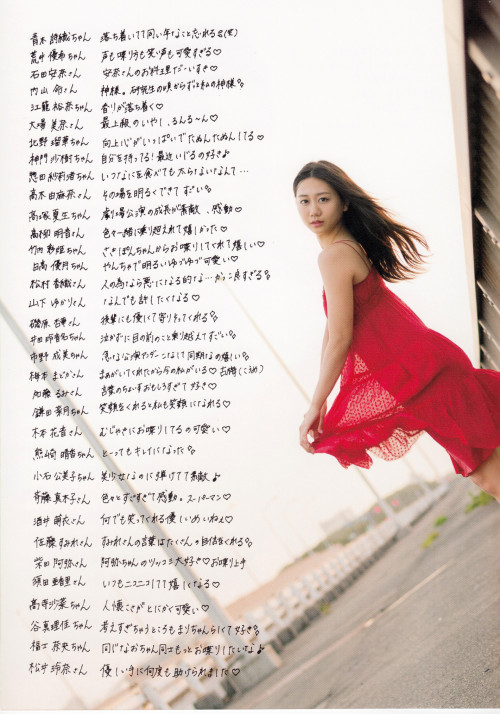 青木 詩織ちゃん 落ち着いてて同い年なこと忘れる(笑)
荒井 優希ちゃん 声も喋り方も笑い声も可愛すぎる♡
石田 安奈さん 安奈さんのお料理だーいすき♡
内山 命さん 神様。研究生の頃からずっと私の神様
江籠 裕奈ちゃん 香りが落ち着く♡
大場 美奈さん 最上級のいやし、るんる〜ん♡
北野 瑠華ちゃん 向上心がいっぱいでたぬんたぬんしてる
神門 沙樹ちゃん 自分を持ってる!最近いじるの好き♪
惣田 紗莉渚ちゃん いつなにを食べても太らないなんて…
高木 由麻奈さん その場を明るくできてすごい
高塚 夏生ちゃん 劇場公演の成長が素敵、感動♡
高柳 明音さん 色々一緒に乗り越えれて嬉しかった♡
竹内 彩姫ちゃん さきぽんちゃんからお喋りしてくれて嬉しい♡
日高 優月ちゃん やんちゃで明るいゆづゆづ可愛い♡
松村 香織さん 人の為なら悪になる的な…かっこ良すぎる
山下 ゆかりさん なんでも許したくなる♡
磯原 杏華さん 後輩にも優しくて寄りそってくれる
井田 玲音名さん 泣かずに目の前のこと乗り越えてすごい
市野 成美ちゃん 急な公演でダーンとなして同期よの嬉しい
梅本 まどかさん まぁがいてくれたから今の私がいる♡
加藤 るみさん 言葉のちょいすおもしろすぎて好き♡
鎌田 菜月ちゃん 笑顔をくれると私も笑顔になれる♡
木本 花音さん むじゃきにお喋りしてるの可愛い♡
熊崎 晴香ちゃん とーってもキレイになった
小石 公美子ちゃん 美少女なのに弾けてて素敵♪
斉藤 真木子さん 色々とすごすぎて感動。スーパーマン♡
酒井 萌衣さん 何でも笑ってくれる優しいめいねぇ♡
佐藤 すみれさん すみれさんの言葉はたくさんの自信をくれる
柴田 阿弥さん 阿弥ちゃんのツッコミ大好き♡お喋り上手
須田 亜香里さん いつもニコニコしてて嬉しくなる♡
高寺 沙菜ちゃん 人懐こさがとにかく可愛い♡
谷 真理佳ちゃん 考えすぎちゃうところもまりちゃんらしくて好き
福士 奈央ちゃん 同じなおちゃん同士もっとお喋りしたいな♪
松井 玲奈さん 優しい手に何度も助けられました♡